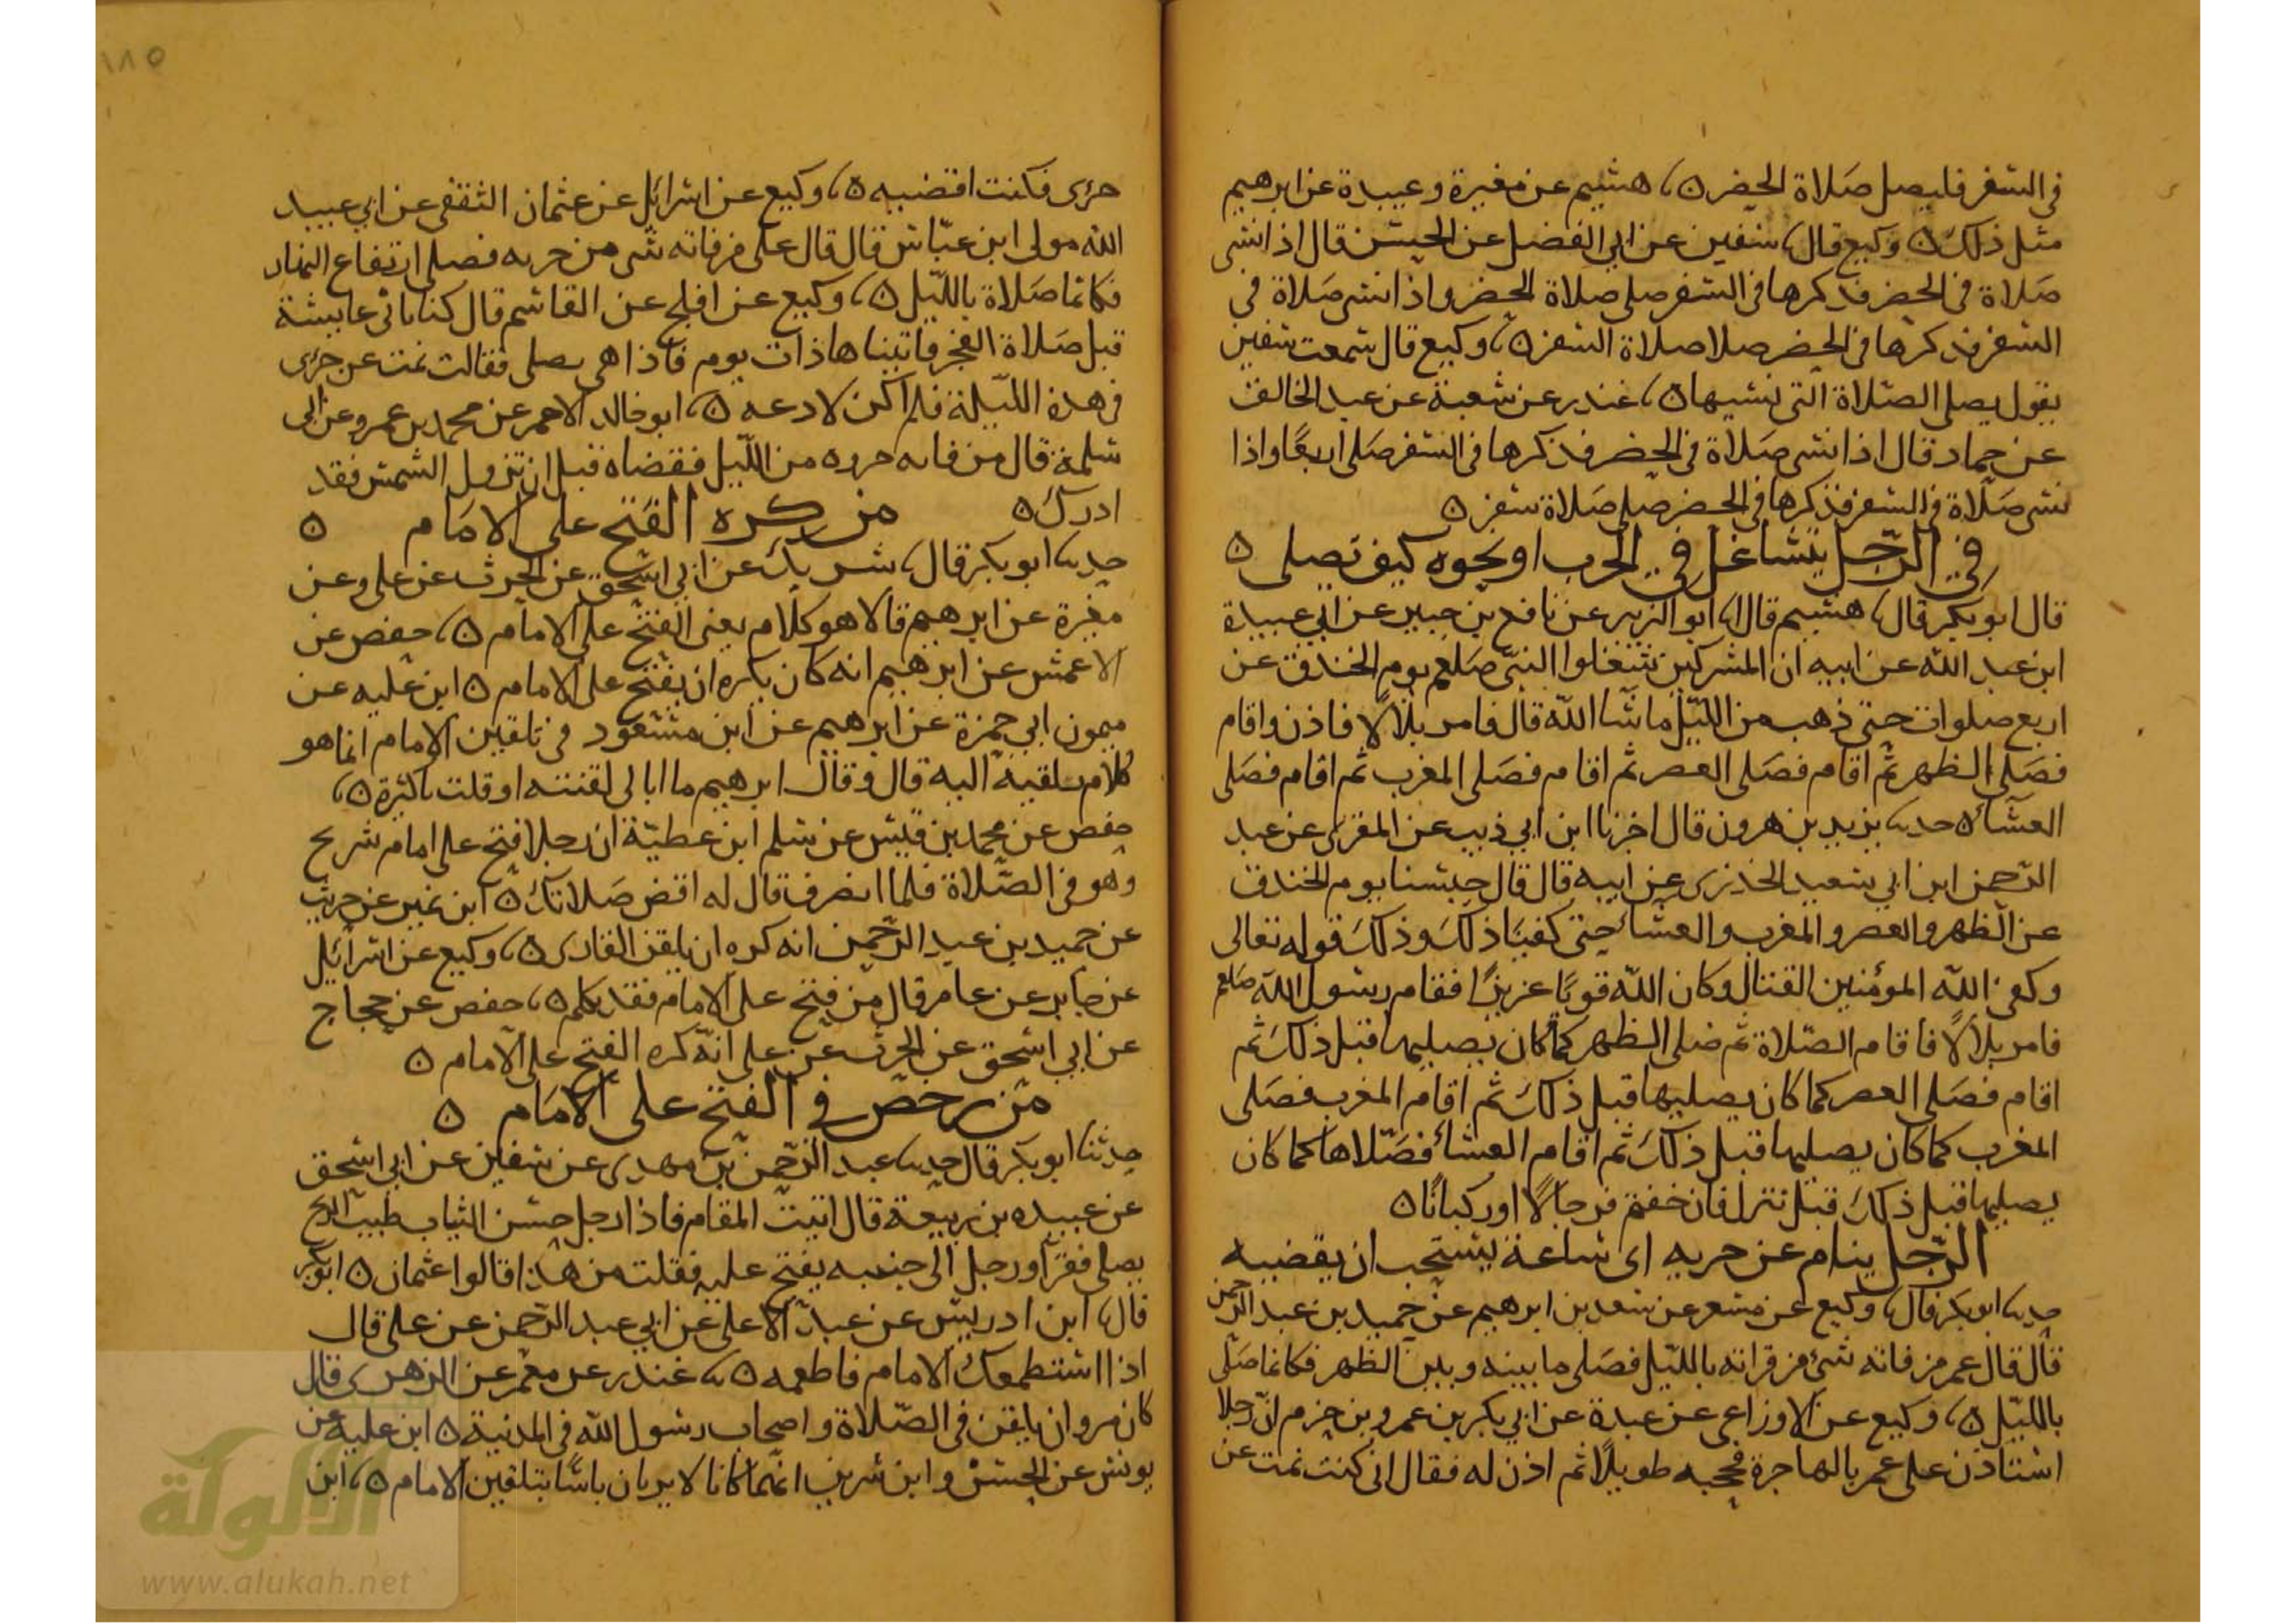 في السفر فليصل صلاة الحضر ۵، هشيم عن مغيرة وعبيدة عن ابرهيم
مثل ذلك ۵ وكيع قال، سفين عن ابي الفضل عن الحسن قال اذا نسى
صلاة في الحضر فذكرها في السفر صلى صلاة الحضر واذا نسى صلاة في
السفر فذكرها في الحضر صلا صلاة السفر ۵، وكيع قال سمعت سفين
يقول يصلى الصلاة التى نسيها ۵، غندر عن شعبة عن عبد الخالق
عن حماد قال اذا نسى صلاة في الحضر فذكرها في السفر صلى اربعًا واذا
نسى صلاة في السفر فذكرها في الحضر صلى صلاة سفر ۵
في الرّجل يتشاغل في الحرب او نحوه كيف يصلى ۵
قال ابو بكر قال، هشيم قال، ابو الزبير عن نافع بن جبير عن ابي عبيدة
ابن عبد الله عن ابيه ان المشركين شغلوا النبىّ صلعم يوم الخندق عن
اربع صلوات حتى ذهب من الليل ما شا الله قال فامر بلالًا فاذن واقام
فصلى الظهر ثم اقام فصلى العصر ثم اقام فصلى المغرب ثم اقام فصلى
العشا ۵ حدثنا يزيد بن هرون قال اخبرنا ابن ابي ذيب عن المقبرى عن عبد
الرحمن ابن ابي سعيد الخذرى عن ابيه قال قال حبسنا يوم الخندق
عن الظهر والعصر والمغرب والعشا حتى كفينا ذلك وذلك قوله تعالى
وكفى الله المؤمنين القتال وكان الله قويًا عزيزًا فقام رسول الله صلعم
فامر بلالًا فاقام الصّلاة ثم صلى الظهر كما كان يصليها قبل ذلك ثم
اقام فصلى العصر كما كان يصليها قبل ذلك ثم اقام المغرب فصلى
المغرب كما كان يصليها قبل ذلك ثم اقام العشا فصلاها كما كان
يصليها قبل ذلك قبل نزل فان خفتم فرجالًا او ركبانًا ۵
الرّجل ينام عن حزبه اى ساعة يستحب ان يقضيه
حدثنا ابو بكر قال، وكيع عن مسعر عن سعد بن ابرهيم عن حميد بن عبد الرحمن
قال قال عمر من فاته شئ من قراته بالليل فصلى ما بينه وبين الظهر فكانما صلى
بالليل ۵، وكيع عن الاوزاعى عن عبدة عن ابي بكر بن عمرو بن حزم انّ رجلا
استاذن على عمر بالهاجرة فحجبه طويلًا ثم اذن له فقال انى كنت نمت عن
١٨٥
حزبى فكنت اقضيه ۵، وكيع عن اسرائيل عن عثمان الثقفى عن ابي عبيد
الله مولى ابن عبّاس قال قال على من فاته شى من حزبه فصلى ارتفاع النهار
فكانما صلاة بالليل ۵، وكيع عن افلح عن القاسم قال كنا ناتى عايشة
قبل صلاة الفجر فاتيناها ذات يوم فاذا هى يصلى فقالت نمت عن حزبى
في هذه الليلة فلم اكن لادعه ۵، ابو خالد الاحمر عن محمد بن عمرو عن ابى
سلمة قال من فاته حزبه من الليل فقضاه قبل ان تزول الشمس فقد
ادرك ۵ من كره الفتح على الامام ۵
حدثنا ابو بكر قال، شريك عن ابي اسحق عن الحرث عن على وعن
مغيرة عن ابرهيم قالا هو كلام يعنى الفتح على الامام ۵، حفص عن
الاعمش عن ابرهيم انه كان يكره ان يفتح على الامام ۵ ابن علية عن
ميمون ابي حمزة عن ابرهيم عن ابن مسعود في تلقين الامام انما هو
كلام يلقيه اليه قال وقال ابرهيم ما ابالى لقنته او قلت ۵،
حفص عن محمد بن قيس عن سلم ابن عطيّة ان رجلا فتح على امام شريح
وهو في الصّلاة فلما انصرف قال له اقض صلاتك ۵ ابن نمير عن حريث
عن حميد بن عبد الرحمن انه كره ان يلقن القارى ۵، وكيع عن اسرائيل
عن جابر عن عامر قال من فتح على الامام فقد تكلم ۵، حفص عن حجاج
عن ابي اسحق عن الحرث عن على انّه كره الفتح على الامام ۵
من رخص في الفتح على الامام ۵
حدثنا ابو بكر قال حدثنا عبد الرحمن بن مهدى عن سفين عن ابي اسحق
عن عبيده بن ربيعة قال اتيت المقام فاذا رجل حسن الثياب طيب الريح
يصلى فقرا ورجل الى جنبه يفتح عليه فقلت من هذا قالوا عثمان ۵ ابو بكر
قال، ابن ادريس عن عبد الاعلى عن ابي عبد الرحمن عن على قال
اذا استطعمك الامام فاطعمه ۵، غندر عن معمر عن الزهرى قال
كان مروان يلقن في الصّلاة واصحاب رسول الله في المدنية ۵ ابن علية عن
يونس عن الحسن وابن سرين انهما كانا لا يريان باسًا بتلقين الامام ۵، ابن
الألوكة
www.alukah.net